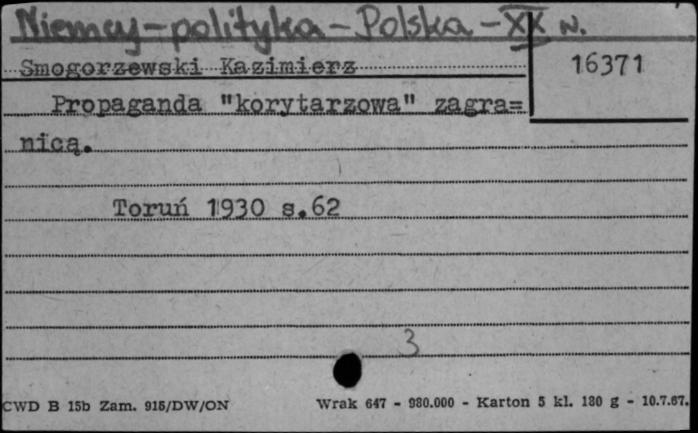 Niemcy - polityka - Polska - XX w.
Smogorzewski Kazimierz
16371
Propaganda "korytarzowa" zagra=
nicą.
Toruń 1930 s.62
3
CWD B 15b Zam. 915/DW/ON Wrak 647 - 980.000 - Karton 5 kl. 180 g - 10.7.67.